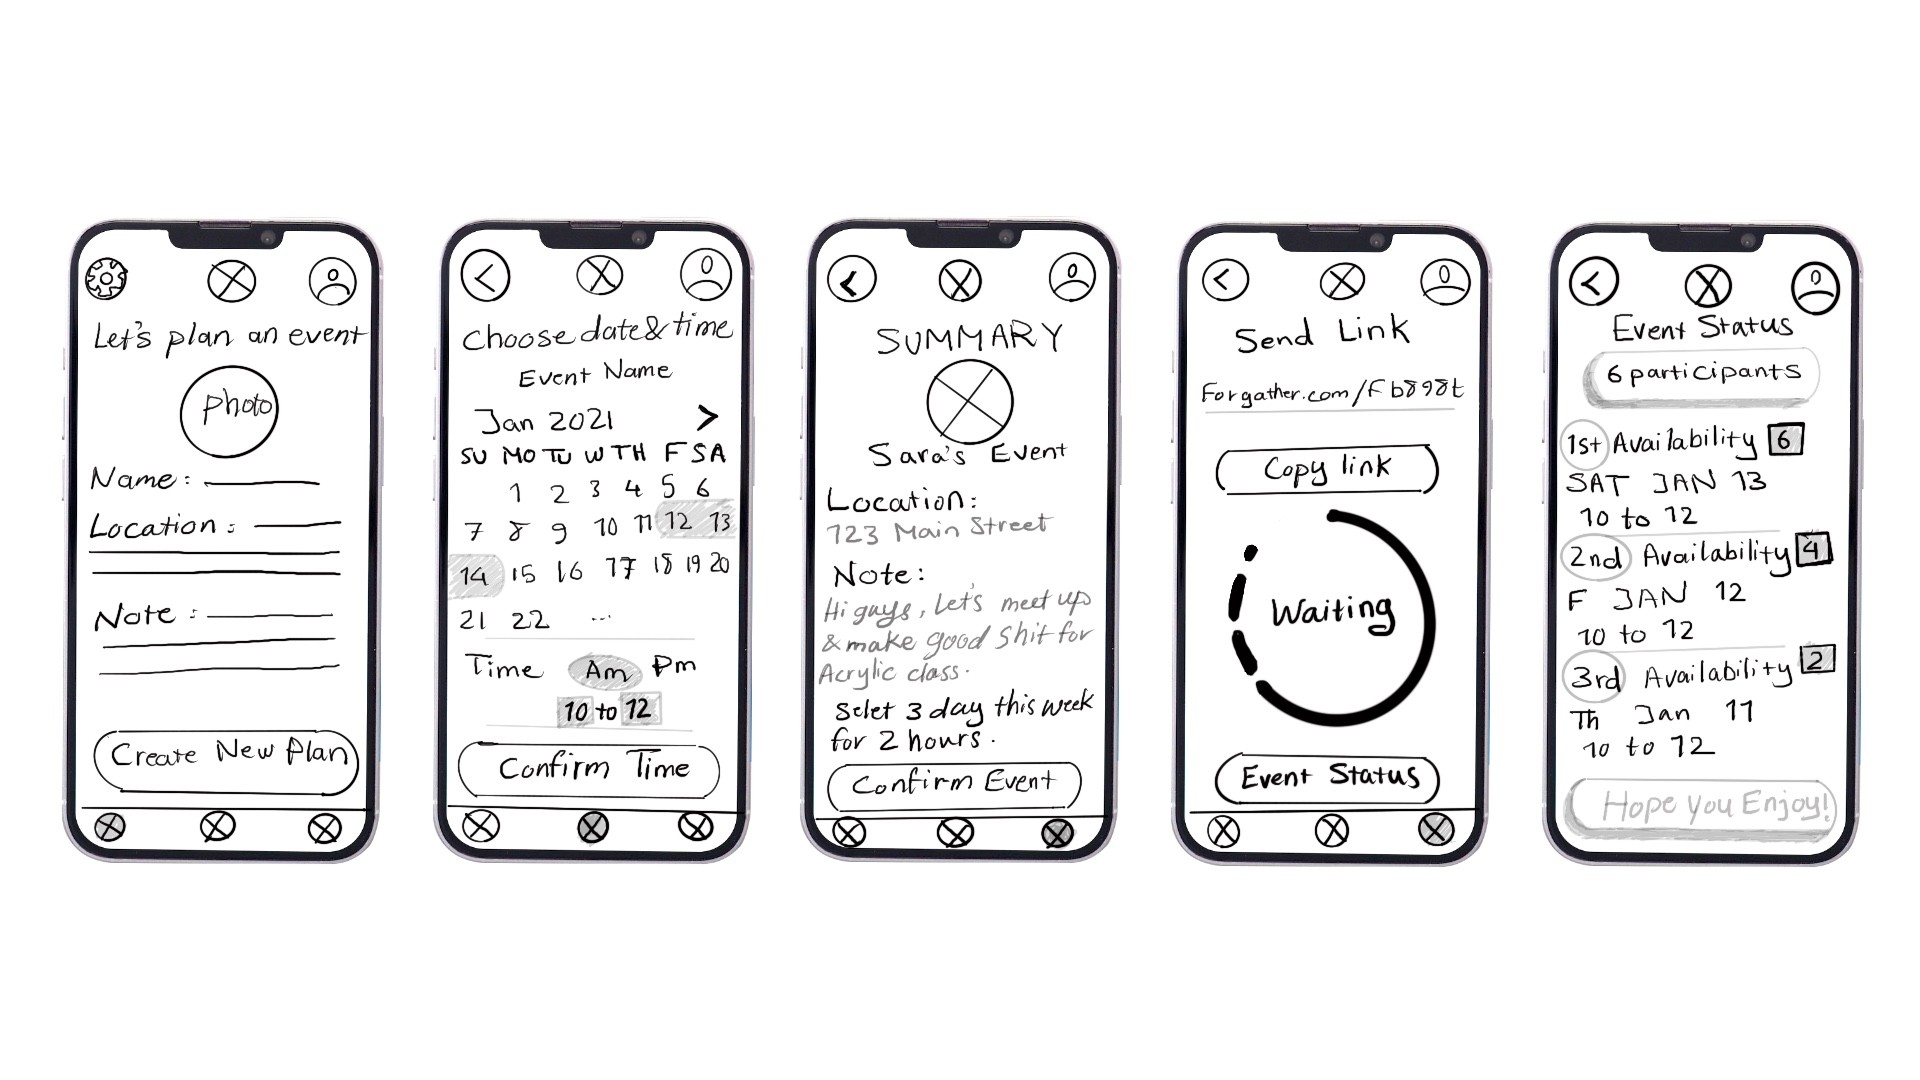 Let's plan an event
photo
Name:
Location:
Note:
Create New Plan
Choose date & time
Event Name
Jan 2021 >
SU MO TU W TH F SA
1 2 3 4 5 6
7 8 9 10 11 12 13
14 15 16 17 18 19 20
21 22 ...
Time Am Pm
10 to 12
Confirm Time
SUMMARY
Sara's Event
Location:
123 Main Street
Note:
Hi guys, Let's meet up
& make good Shit for
Acrylic class.
Selet 3 day this week
for 2 hours.
Confirm Event
Send Link
Forgather.com/Fb898t
Copy link
Waiting
Event Status
Event Status
6 participants
1st Availability 6
SAT JAN 13
10 to 12
2nd Availability 4
F JAN 12
10 to 12
3rd Availability 2
Th Jan 11
10 to 12
Hope you Enjoy!